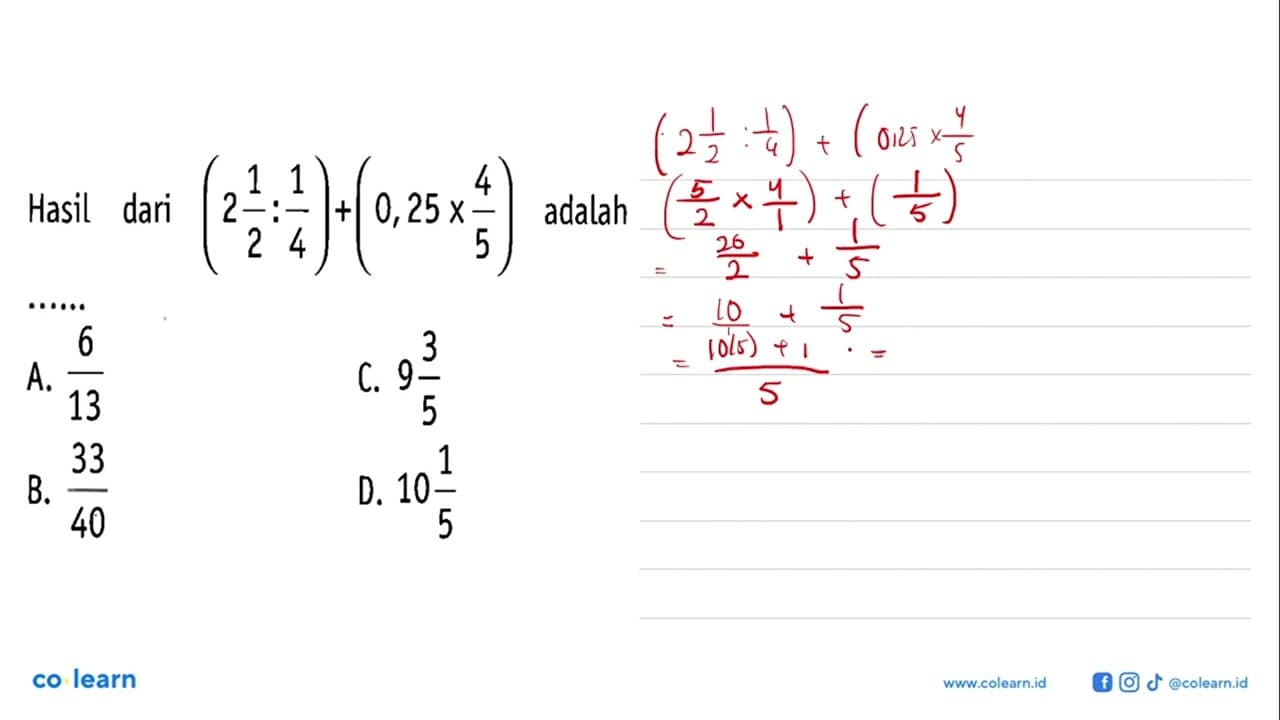 Hasil dari (2 1/2 : 1/4) + (0,25 x 4/5) adalah
......
A. 6/13
B. 33/40
C. 9 3/5
D. 10 1/5
(2 1/2 : 1/4) + (0,25 x 4/5
(5/2 x 4/1) + (1/5)
= 20/2 + 1/5
= 10/1 + 1/5
= 10(5) + 1 / 5 . =
co learn
www.colearn.id
@colearn.id